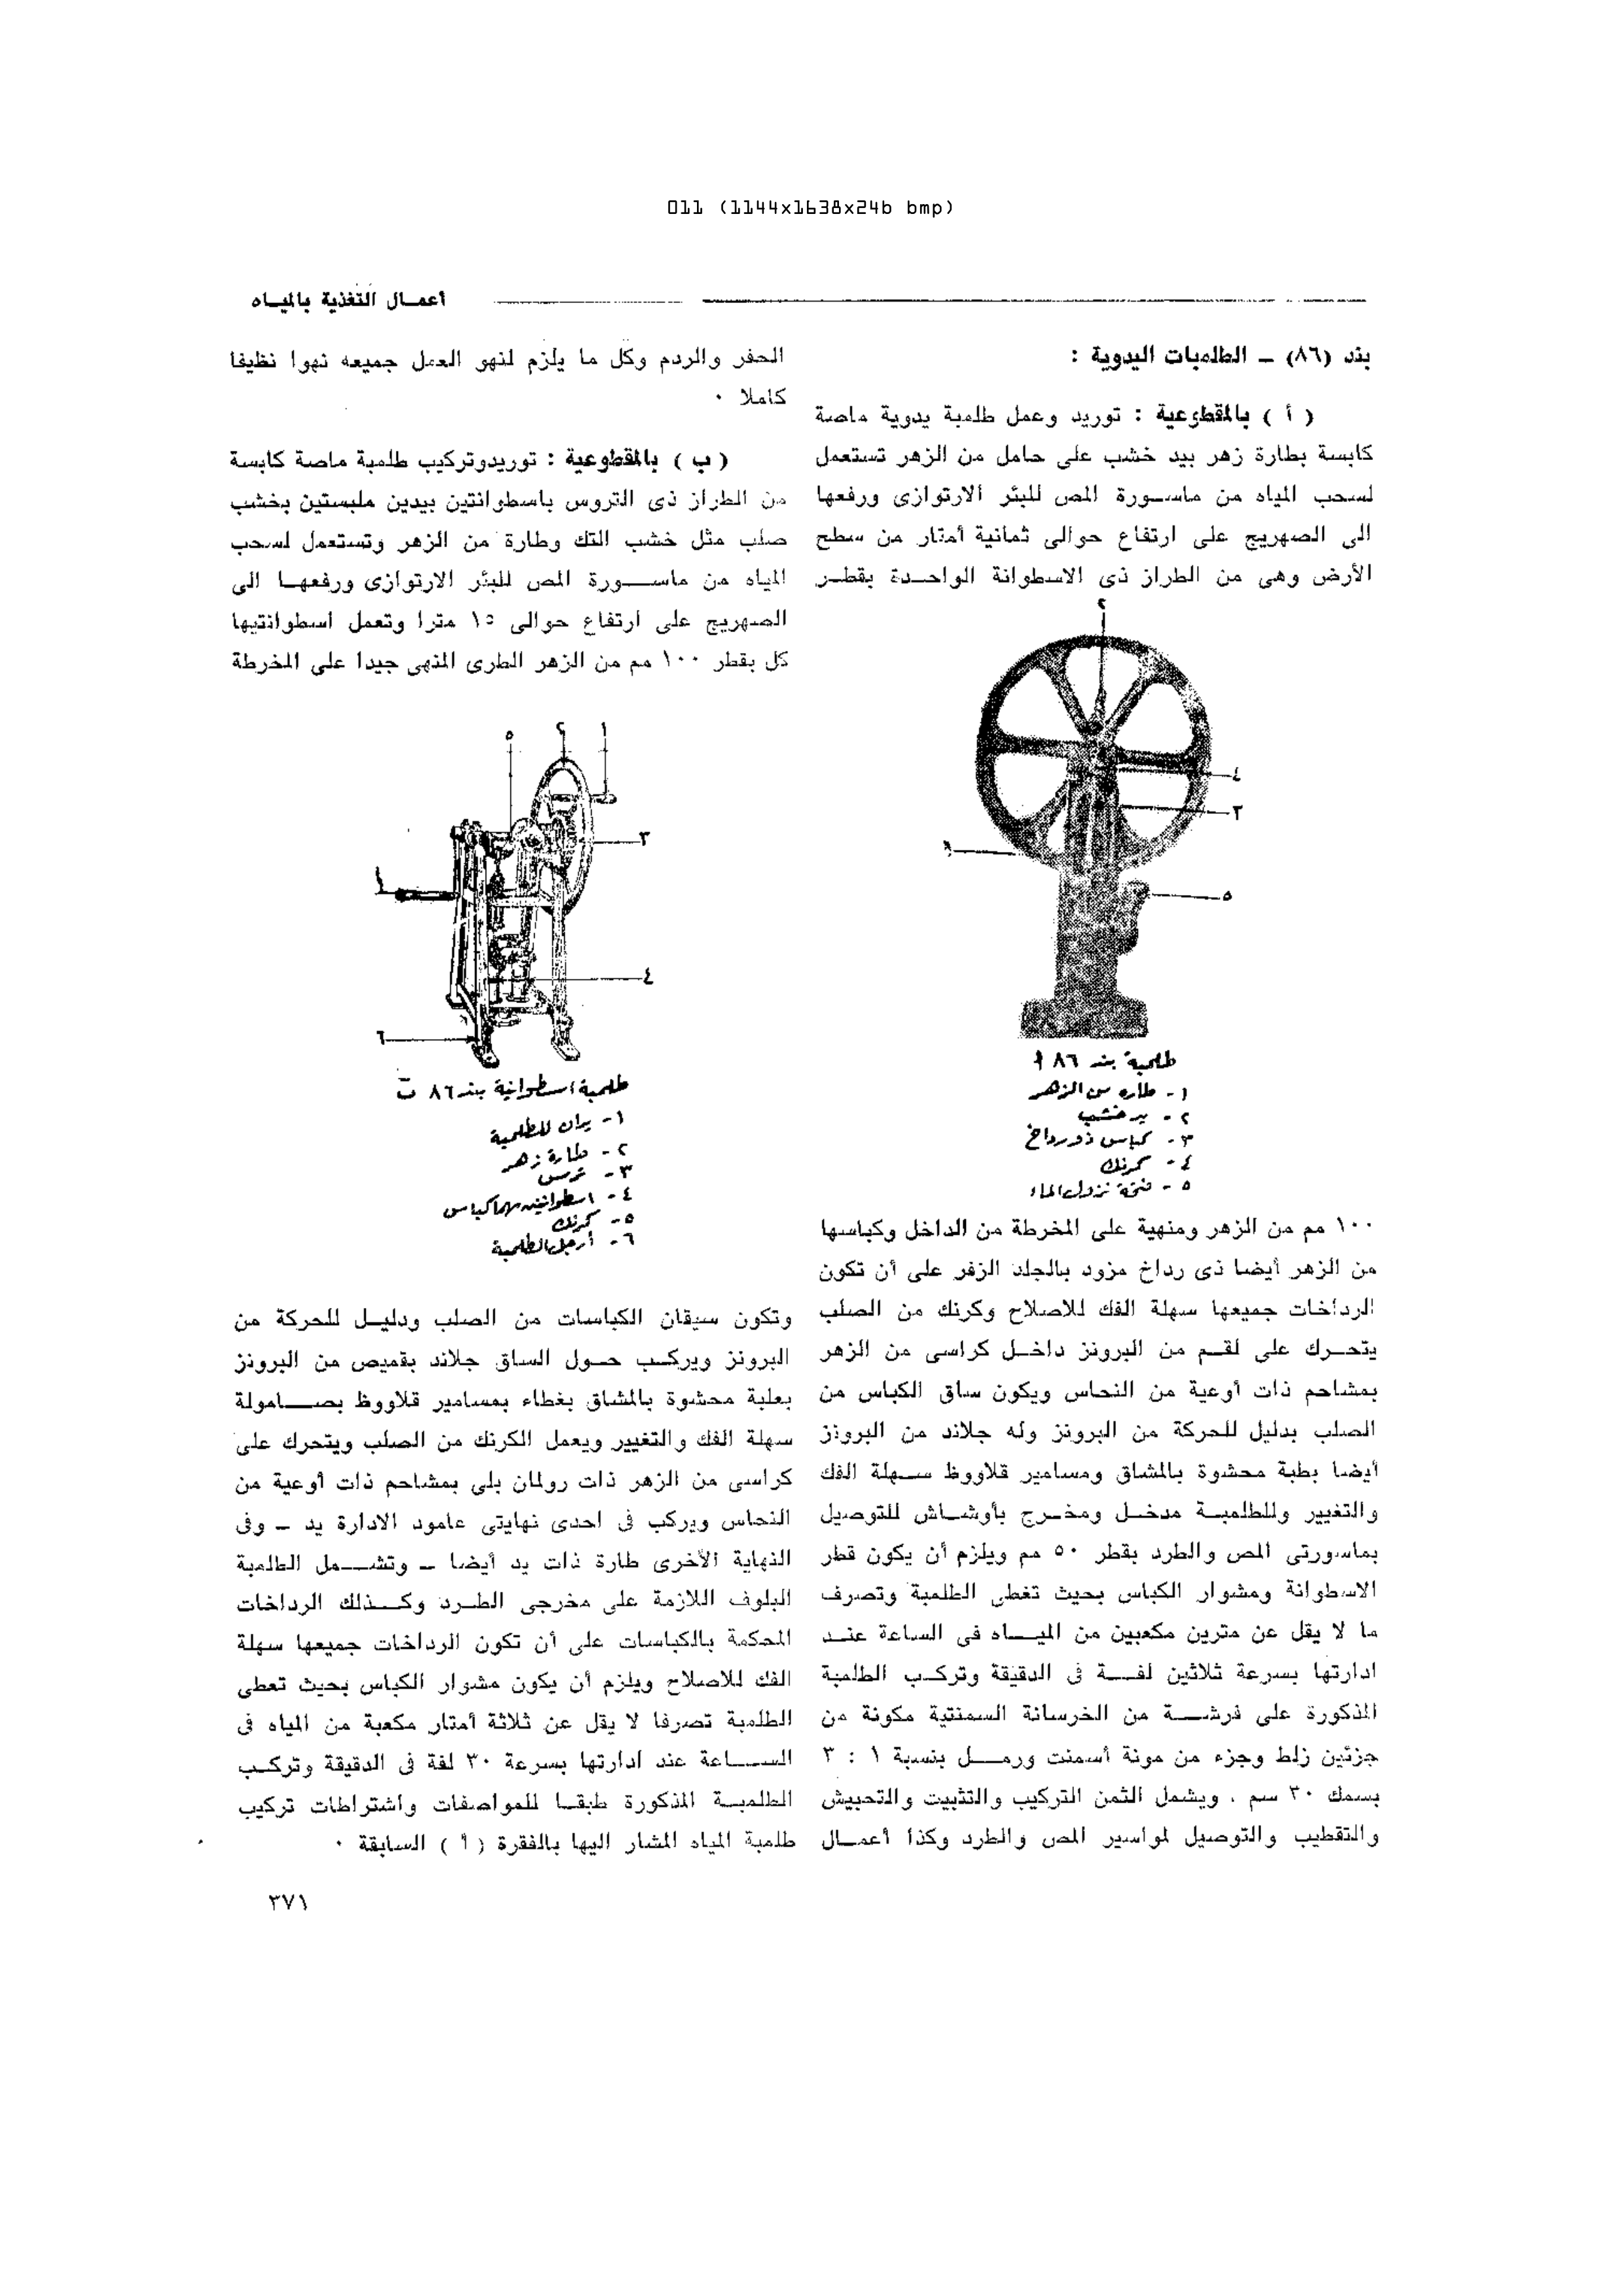 011 (1144x1638x24b bmp)
أعمـال التغذية بالميـاه
بند (٨٦) – الطلمبات اليدوية :
( أ ) بالمقطوعية : توريد وعمل طلمبة يدوية ماصة
كابسة بطارة زهر بيد خشب على حامل من الزهر تستعمل
لسحب المياه من ماسـورة المص للبئر الارتوازى ورفعها
الى الصهريج على ارتفاع حوالى ثمانية أمتار من سطح
الأرض وهى من الطراز ذى الاسطوانة الواحـدة بقطـر
٢
٤
٣
١
٥
طلمبة بند ٨٦ أ
١ - طاره من الزهر
٢ - يد خشب
٣ - كباس ذو رداخ
٤ - كرنك
٥ - فتحة نزول الماء
١٠٠ مم من الزهر ومنهية على المخرطة من الداخل وكباسها
من الزهر أيضا ذى رداخ مزود بالجلد الزفر على أن تكون
الرداخات جميعها سهلة الفك للاصلاح وكرنك من الصلب
يتحـرك على لقـم من البرونز داخـل كراسى من الزهر
بمشاحم ذات أوعية من النحاس ويكون ساق الكباس من
الصلب بدليل للحركة من البرونز وله جلاند من البرونز
أيضا بطبة محشوة بالمشاق ومسامير قلاووظ سـهلة الفك
والتغيير وللطلمبـة مدخـل ومخـرج بأوشـاش للتوصيل
بماسورتى المص والطرد بقطر ٥٠ مم ويلزم أن يكون قطر
الاسطوانة ومشوار الكباس بحيث تغطى الطلمبة وتصرف
ما لا يقل عن مترين مكعبين من الميـاه فى الساعة عنـد
ادارتها بسرعة ثلاثين لفـة فى الدقيقة وتركـب الطلمبة
المذكورة على فرشـة من الخرسانة السمنتية مكونة من
جزئين زلط وجزء من مونة أسمنت ورمـل بنسبة ١ : ٣
بسمك ٣٠ سم ، ويشمل الثمن التركيب والتثبيت والتحبيش
والتقطيب والتوصيل لمواسير المص والطرد وكذا أعمـال
الحفر والردم وكل ما يلزم لنهو العمل جميعه نهوا نظيفا
كاملا ٠
( ب ) بالمقطوعية : توريدوتركيب طلمبة ماصة كابسة
من الطراز ذى التروس باسطوانتين بيدين ملبستين بخشب
صلب مثل خشب التك وطارة من الزهر وتستعمل لسحب
المياه من ماسـورة المص للبئر الارتوازى ورفعهـا الى
الصهريج على ارتفاع حوالى ١٥ مترا وتعمل اسطوانتيها
كل بقطر ١٠٠ مم من الزهر الطرى المنهى جيدا على المخرطة
١
٢
٥
٣
١
٤
٦
طلمبة اسطوانية بند ٨٦ ب
١ - يدان للطلمبة
٢ - طارة زهر
٣ - ترس
٤ - اسطوانتين بهما كباس
٥ - كرنك
٦ - أرجل الطلمبة
وتكون سيقان الكباسات من الصلب ودليـل للحركة من
البرونز ويركـب حـول الساق جلاند بقميص من البرونز
بعلبة محشوة بالمشاق بغطاء بمسامير قلاووظ بصـامولة
سهلة الفك والتغيير ويعمل الكرنك من الصلب ويتحرك على
كراسى من الزهر ذات رولمان بلى بمشاحم ذات أوعية من
النحاس ويركب فى احدى نهايتى عامود الادارة يد – وفى
النهاية الأخرى طارة ذات يد أيضا – وتشـمل الطلمبة
البلوف اللازمة على مخرجى الطـرد وكـذلك الرداخات
المحكمة بالكباسات على أن تكون الرداخات جميعها سهلة
الفك للاصلاح ويلزم أن يكون مشوار الكباس بحيث تعطى
الطلمبة تصرفا لا يقل عن ثلاثة أمتار مكعبة من المياه فى
السـاعة عند ادارتها بسرعة ٣٠ لفة فى الدقيقة وتركـب
الطلمبـة المذكورة طبقـا للمواصفات واشتراطات تركيب
طلمبة المياه المشار اليها بالفقرة ( أ ) السابقة ٠
٣٧١